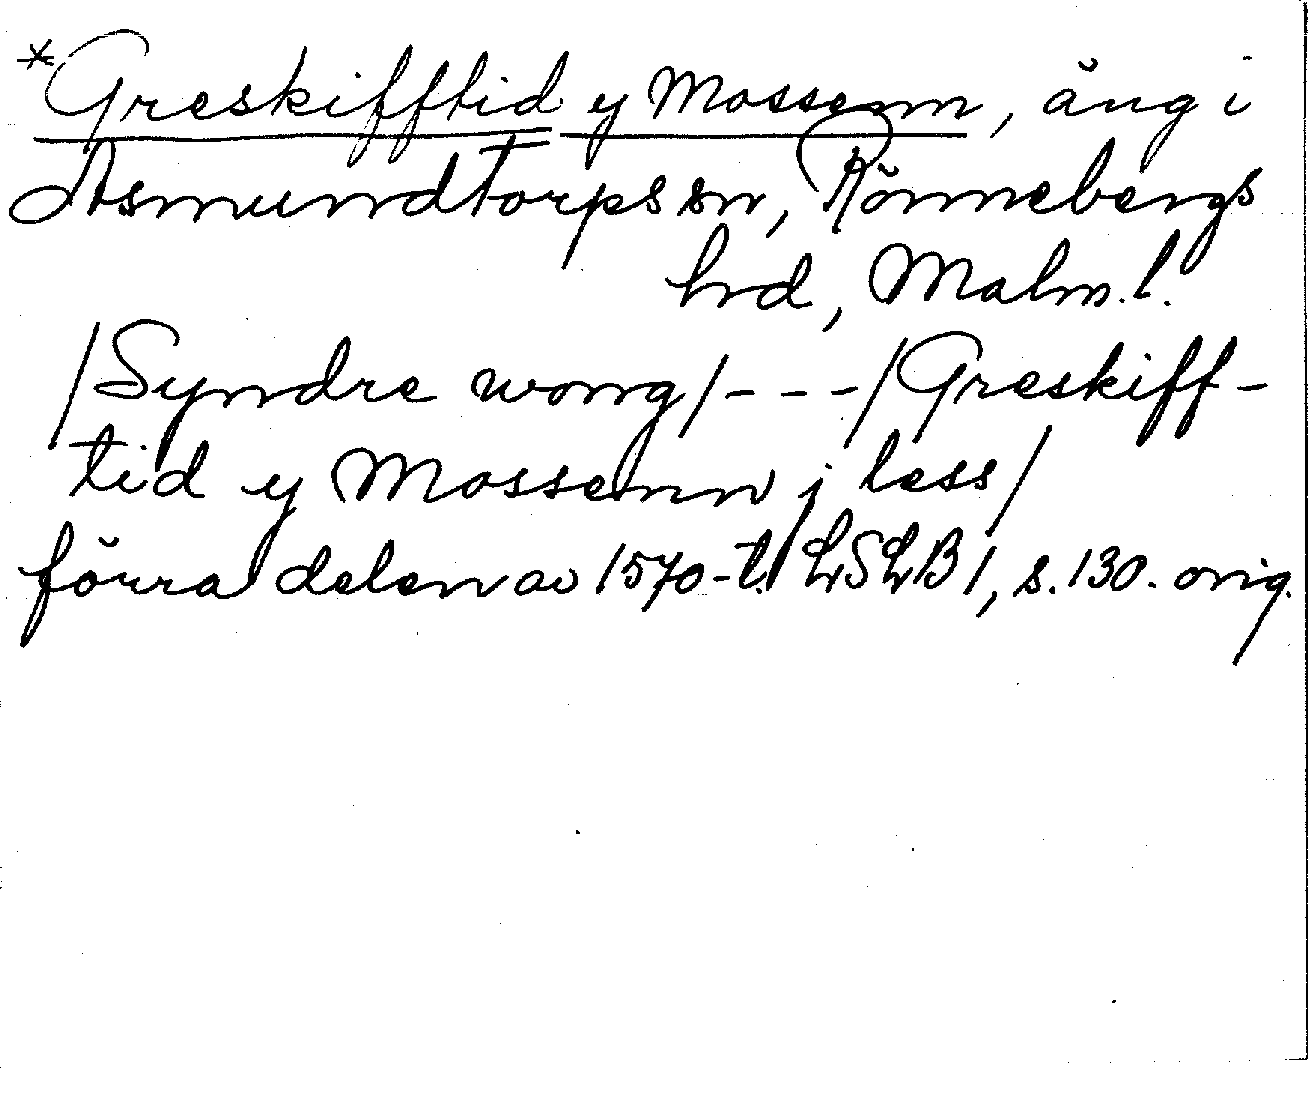 *Greskifftid y Mossenn, äng i
Asmundtorps sn, Rönnebergs
hrd, Malm.l.
/Syndre wong/---/Greskiff-
tid y Mossenn j less/
förra delen av 1570-t. LSLB 1, s. 130. orig.